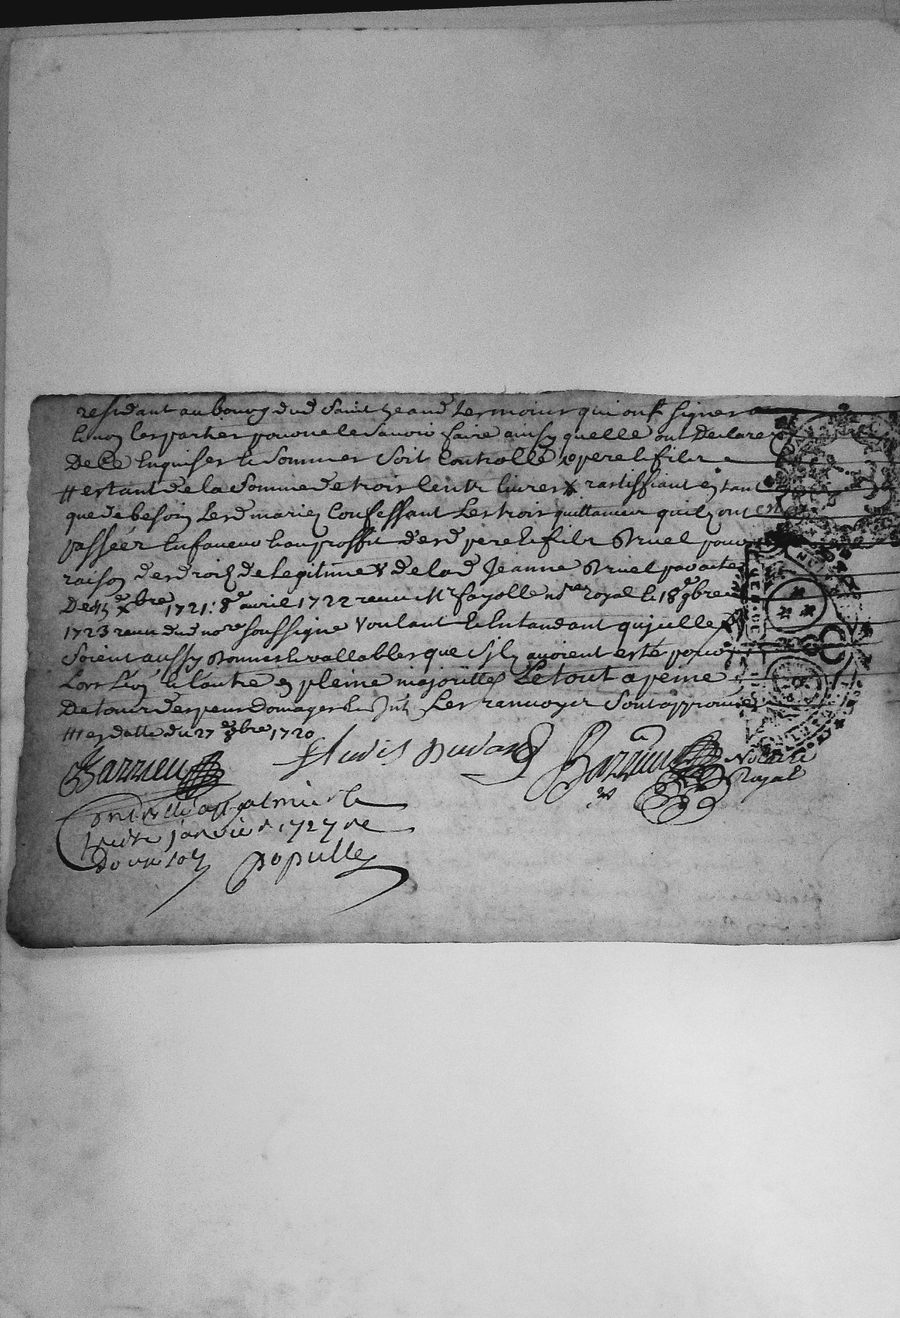 residant au bourg dud Saint Jean d tesmoins qui ont signer
et non les parties pour ne le savoir faire ainsy quelle ont declare
de ce enquises et sommes soit controlle # pere et fils
# estant de la somme de trois cents livres # rattiffiant en tant
que de besoin lesd mariez confessant les trois quittances quilz ont
passées en faveur et au proffit desd pere et fils Bruel pour
raison des droitz de legitime de lad Jeanne Bruel par actes
des xbre 1721: 8e avril 1722 receu Mr fayolle nore royal et 18e 9bre
1723 receu dud nore soussigne voulant et entandant quicelles
soient aussy bonnes et vallables que sy ilz avoient esté
lors l'un et l'autre en pleine majoritte Le tout a peine
de tous despens domages et Les renvoyes sont approuves
## en datte du 27 9bre 1720
Barrieu Durand Barrieu Notaire
Royal
Controllé a st galmier le
janvier 1727 re
douze sols populle